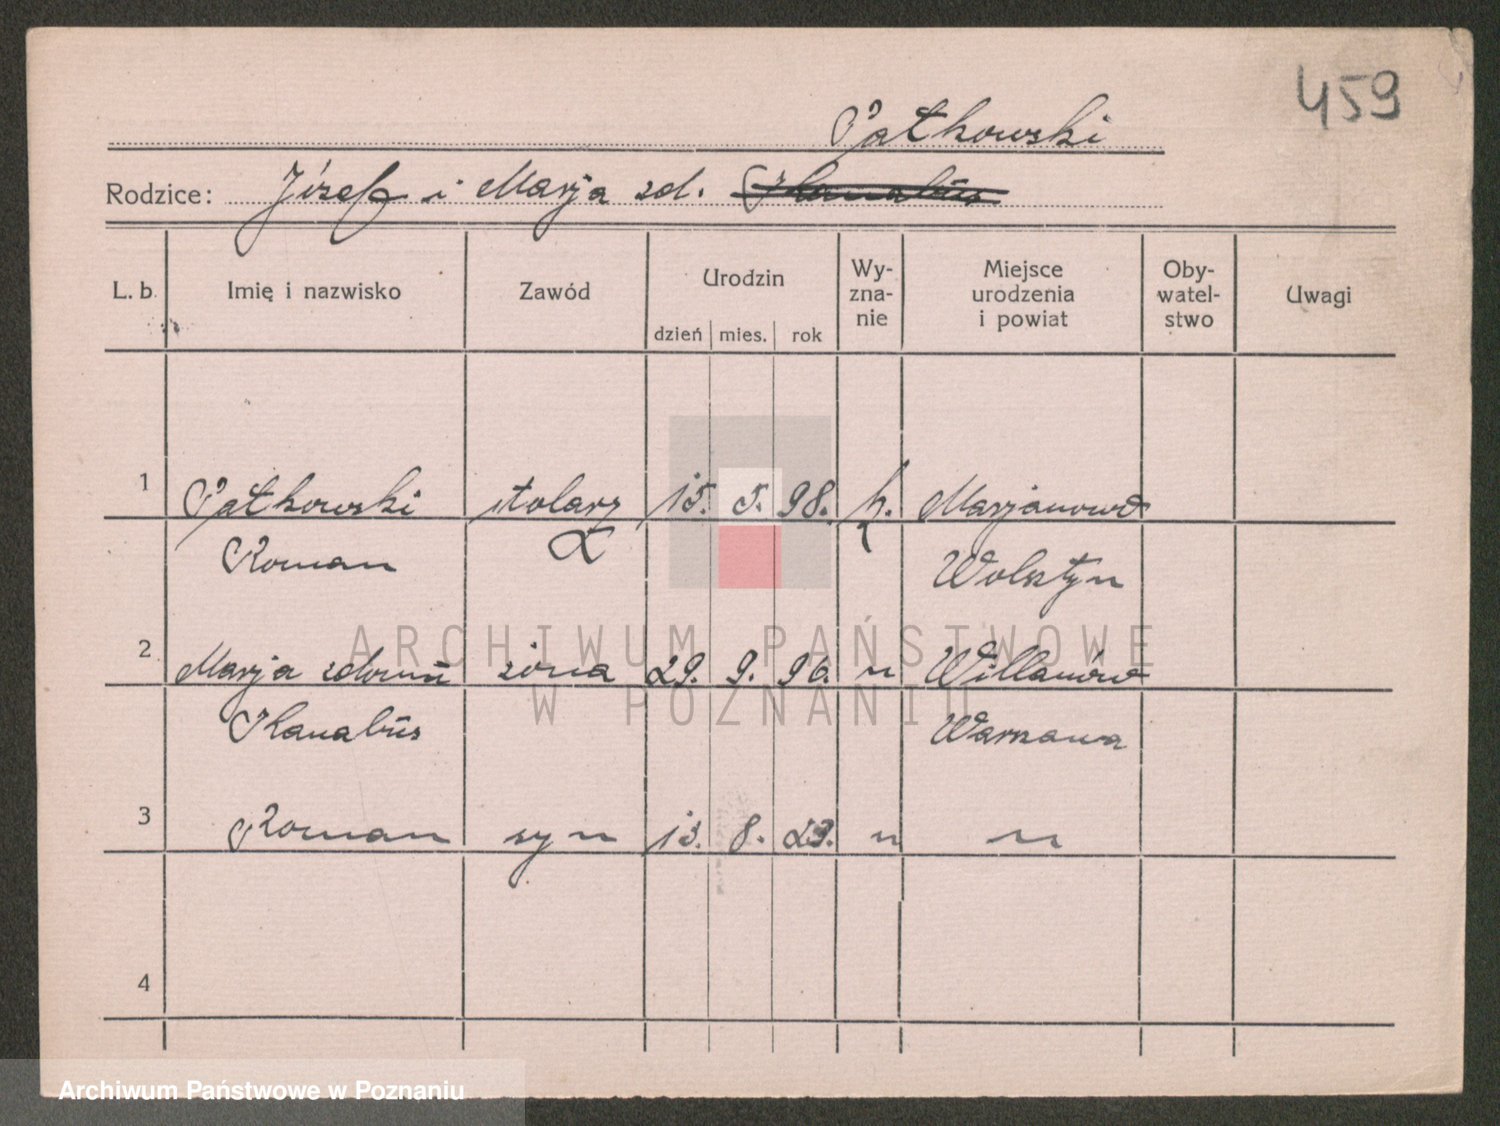 459
Patkowski
Rodzice: Józef i Marja zd.
L. b. Imię i nazwisko Zawód Urodzin dzień mies. rok Wy-zna-nie Miejsce urodzenia i powiat Oby-watel-stwo Uwagi
1 Patkowski stolarz 15. 5. 98. k. Marjanowo
Roman Wolsztyn
2 Marja zdomu żona 29. 9. 96. " Willanów
Kanabus Warszawa
3 Roman syn 13. 8. 23. " "
4
ARCHIWUM PAŃSTWOWE
W POZNANIU
Archiwum Państwowe w Poznaniu